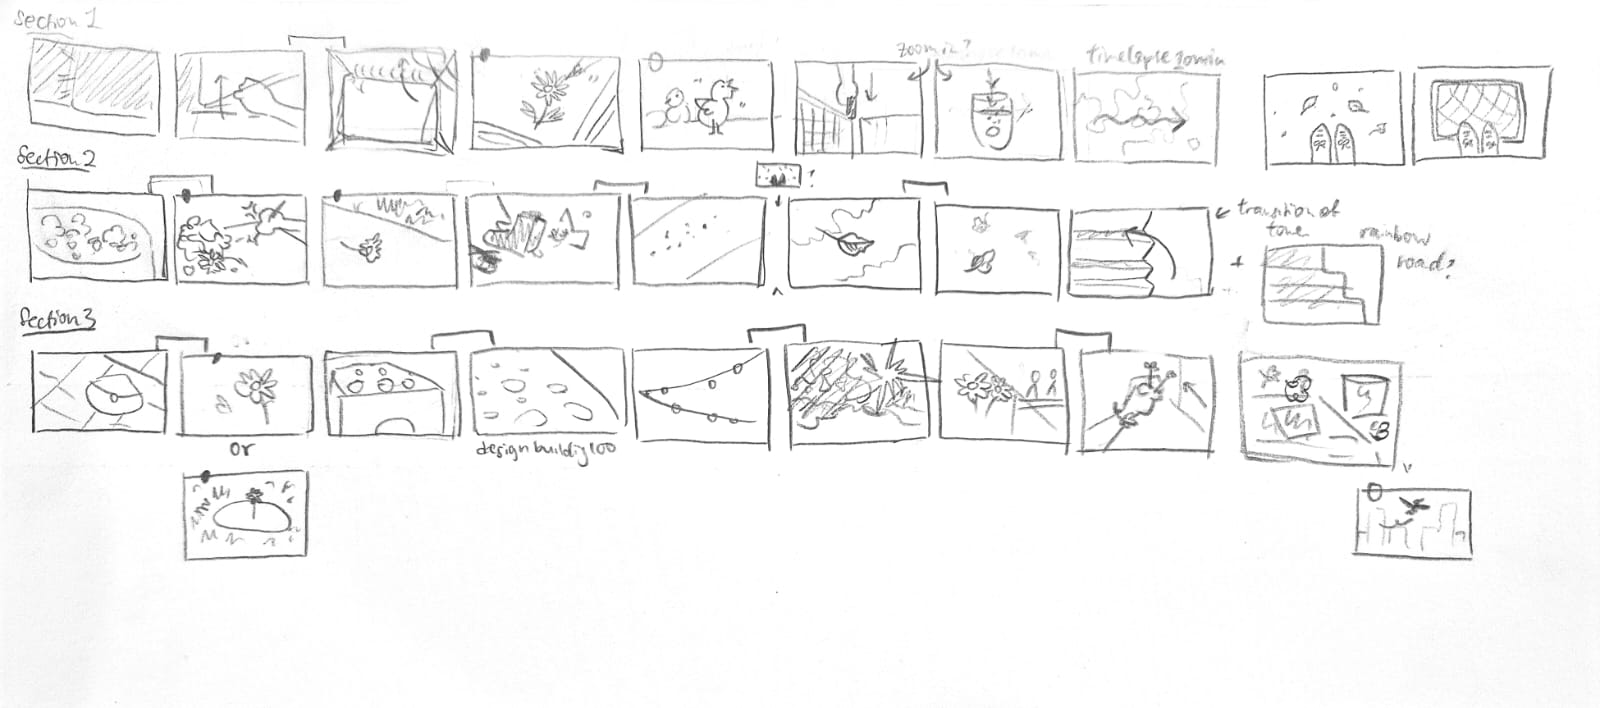 Section 1
zoom in?
timelapse zoomin
Section 2
?
transition of
tone
rainbow
road?
+
Section 3
or
design building 100